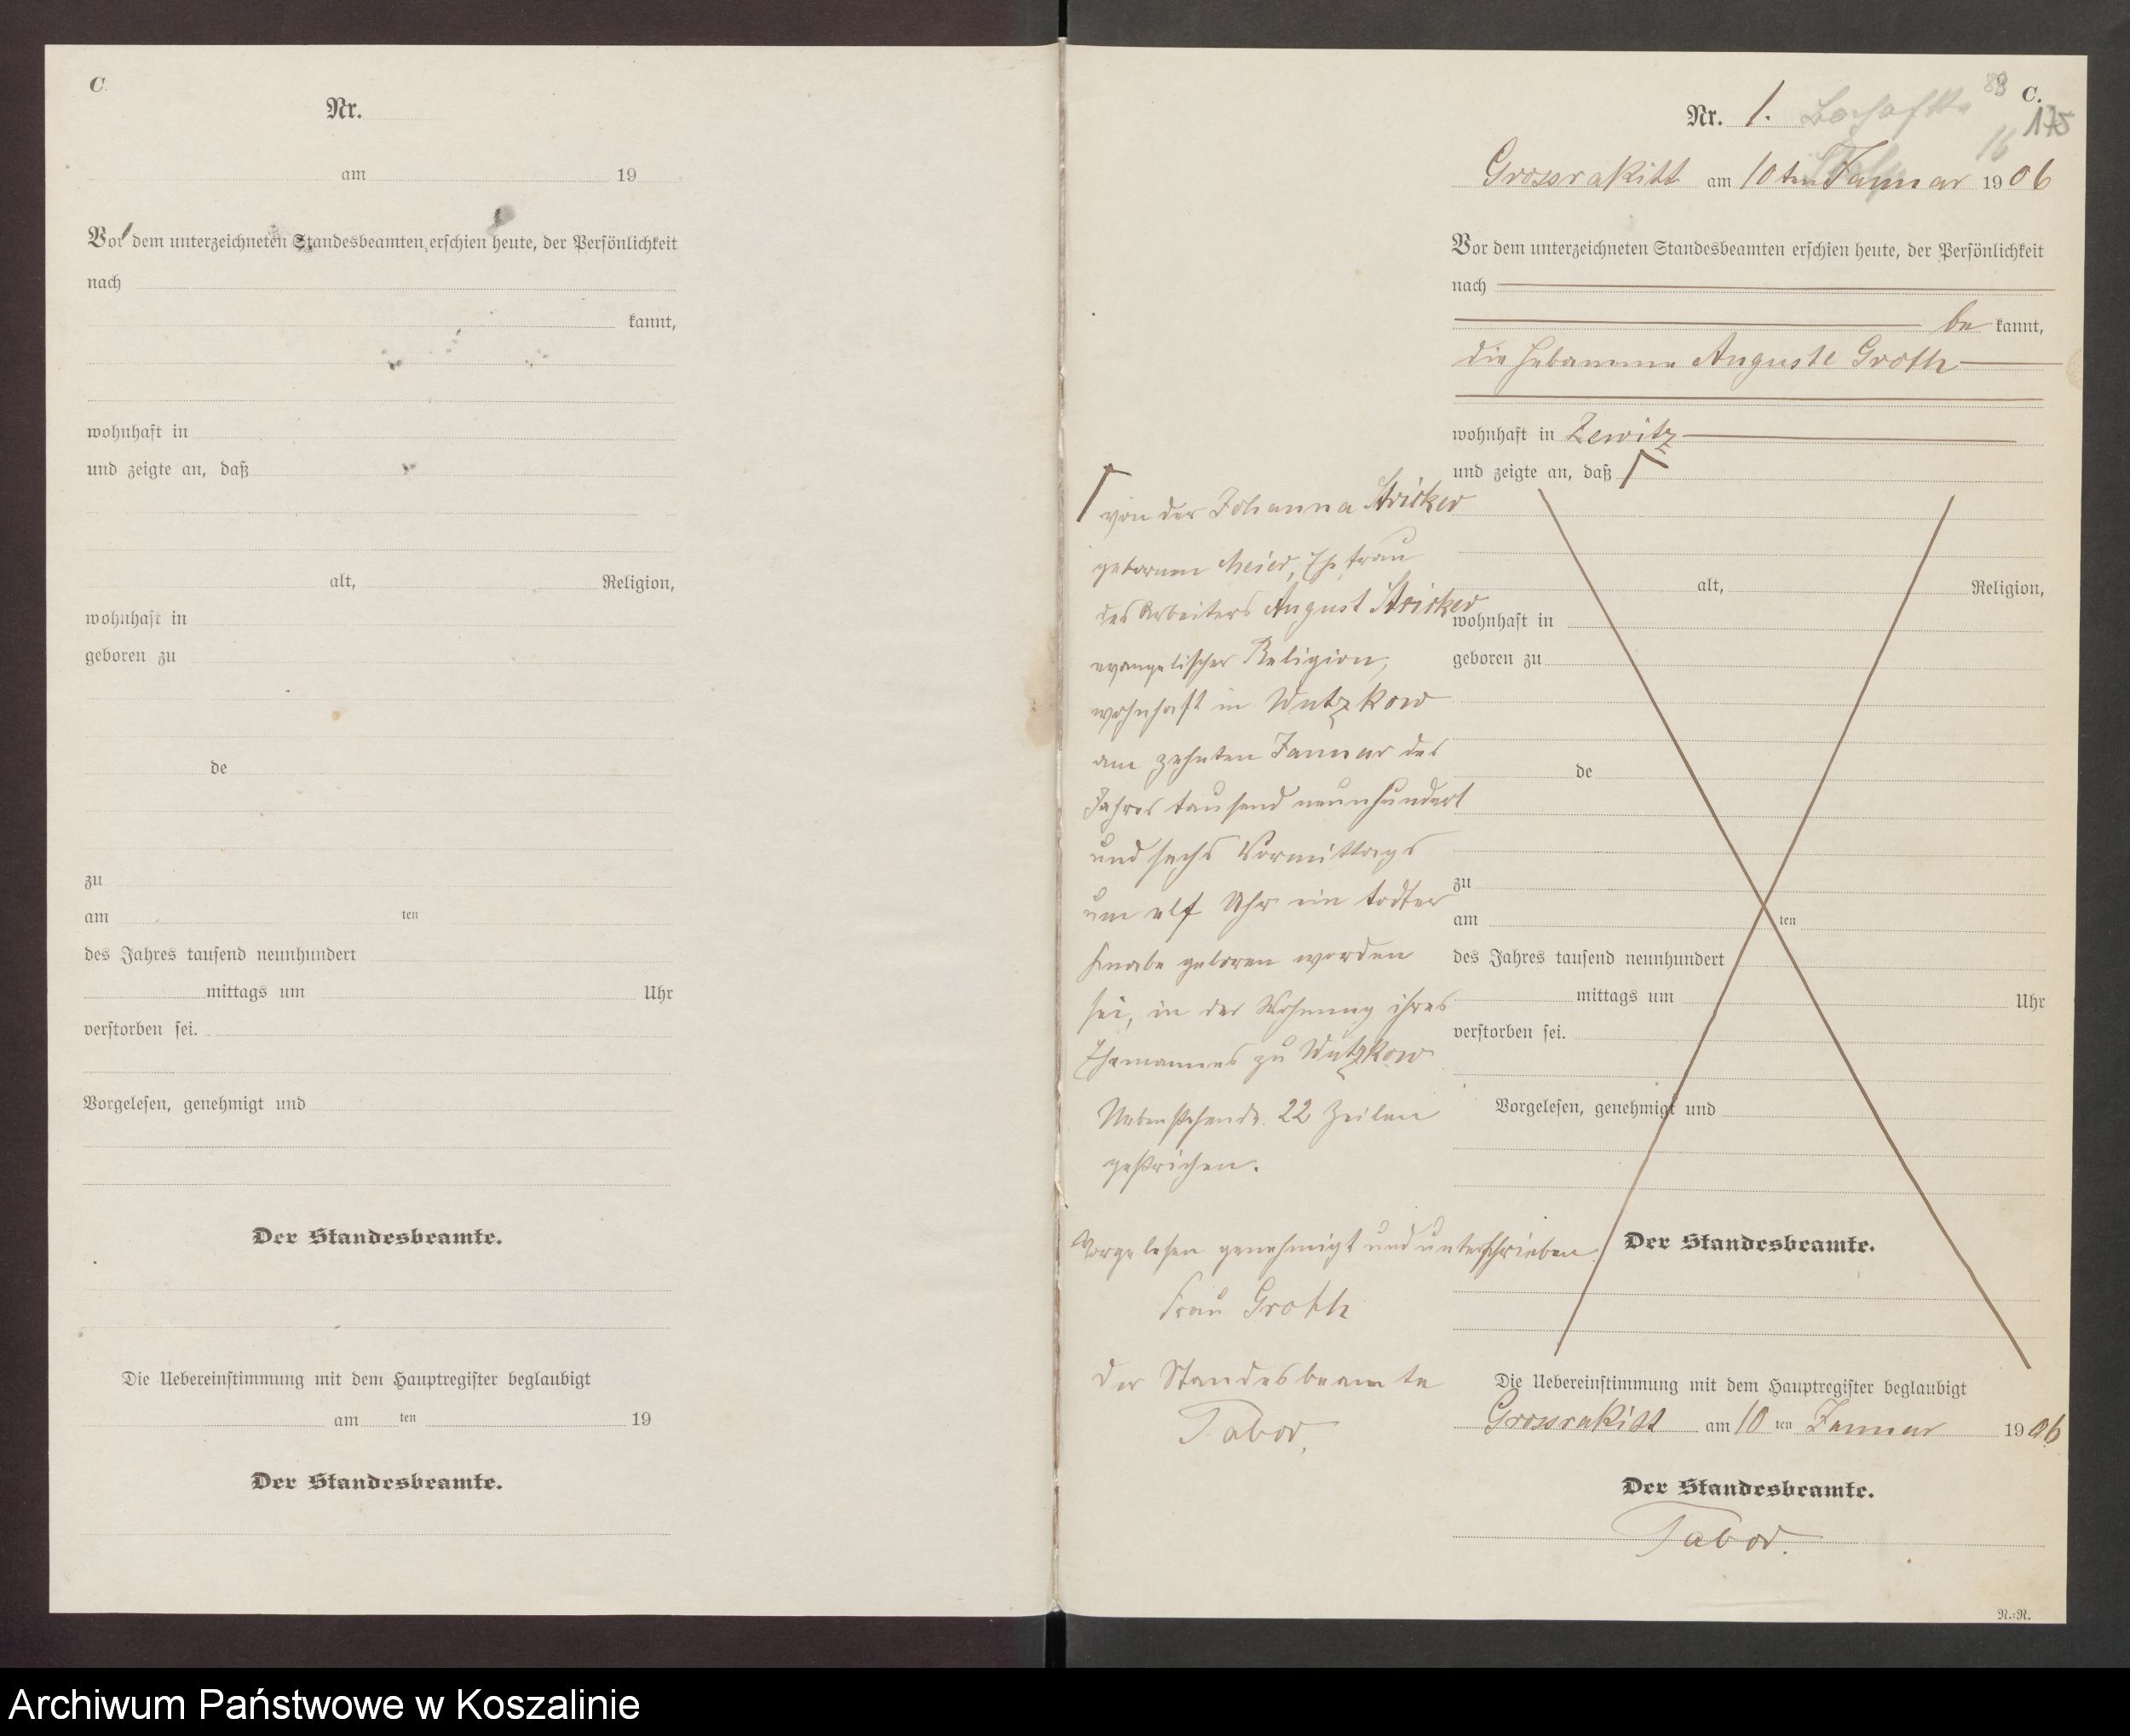 C.
Nr.
am 19
Vor dem unterzeichneten Standesbeamten erschien heute, der Persönlichkeit
nach
kannt,
wohnhaft in
und zeigte an, daß
alt, Religion,
wohnhaft in
geboren zu
de
zu
am ten
des Jahres tausend neunhundert
mittags um Uhr
verstorben sei.
Vorgelesen, genehmigt und
Der Standesbeamte.
Die Uebereinstimmung mit dem Hauptregister beglaubigt
am ten 19
Der Standesbeamte.
C.
175
16
Nr. 1.
Grossrakitt am 10ten Januar 1906
Vor dem unterzeichneten Standesbeamten erschien heute, der Persönlichkeit
nach
be kannt,
die Hebamme Auguste Groth
wohnhaft in Zewitz
und zeigte an, daß
von der Johanna Stricker
geborenen Meier, Ehefrau
des Arbeiters August Stricker
evangelischer Religion,
wohnhaft in Wutzkow
am zehnten Januar des
Jahres tausend neunhundert
und sechs Vormittags
um elf Uhr ein todter
Knabe geboren worden
sei, in der Wohnung ihres
Ehemannes zu Wutzkow
Nebenstehende 22 Zeilen
gestrichen.
Vorgelesen genehmigt und unterschrieben
Frau Groth
Der Standesbeamte
Tabor.
alt, Religion,
wohnhaft in
geboren zu
de
zu
am ten
des Jahres tausend neunhundert
mittags um Uhr
verstorben sei.
Vorgelesen, genehmigt und
Der Standesbeamte.
Die Uebereinstimmung mit dem Hauptregister beglaubigt
Grossrakitt am 10 ten Januar 1906
Der Standesbeamte.
Tabor.
N.=N.
Archiwum Państwowe w Koszalinie